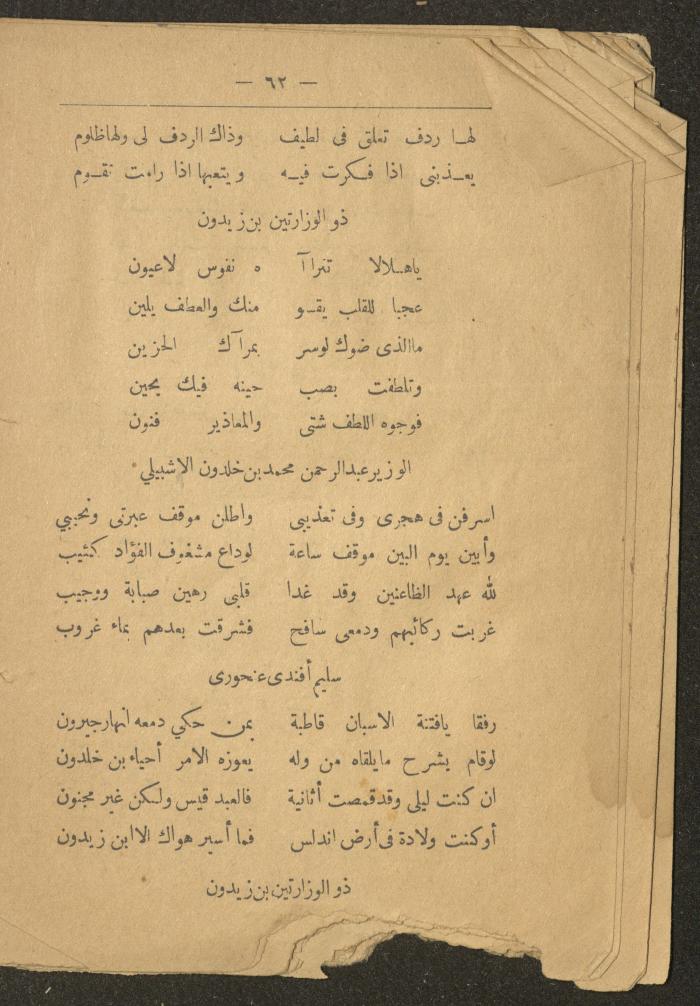 — ٦٢ —
لهـا ردف تعلق فى لطيف وذاك الردف لى ولها ظلوم
يعـذبنى اذا فـكرت فيـه ويتعبها اذا رامت تقـوم
ذو الوزارتين بن زيدون
ياهـلالا تتراآ ه نفوس لاعيون
عجبا للقلب يقـو منك والعطف يلين
ماالذى ضوك لوسر بمرآك الحزين
وتلطفت بصب حينه فيك يحين
فوجوه اللطف شتى والمعاذير فنون
الوزير عبدالرحمن محمد بن خلدون الاشبيلي
اسرفن فى هجرى وفى تعذيبى واطلن موقف عبرتى ونحيبي
وأبين يوم البين موقف ساعة لوداع مشغوف الفؤاد كئيب
لله عهد الظاعنين وقد غدا قلبى رهين صبابة ووجيب
غربت ركائبهم ودمعى سافح فشرقت بعدهم بماء غروب
سليم أفندى عنحورى
رفقا يافتنة الاسبان قاطبة بمن حكي دمعه انهار جيرون
لوقام بشرح مايلقاه من وله يعوزه الامر أحياء بن خلدون
ان كنت ليلى وقدقمصت أثانية فالعبد قيس ولكن غير مجنون
أوكنت ولادة فى أرض اندلس فما أسير هواك الا ابن زيدون
ذو الوزارتين بن زيدون